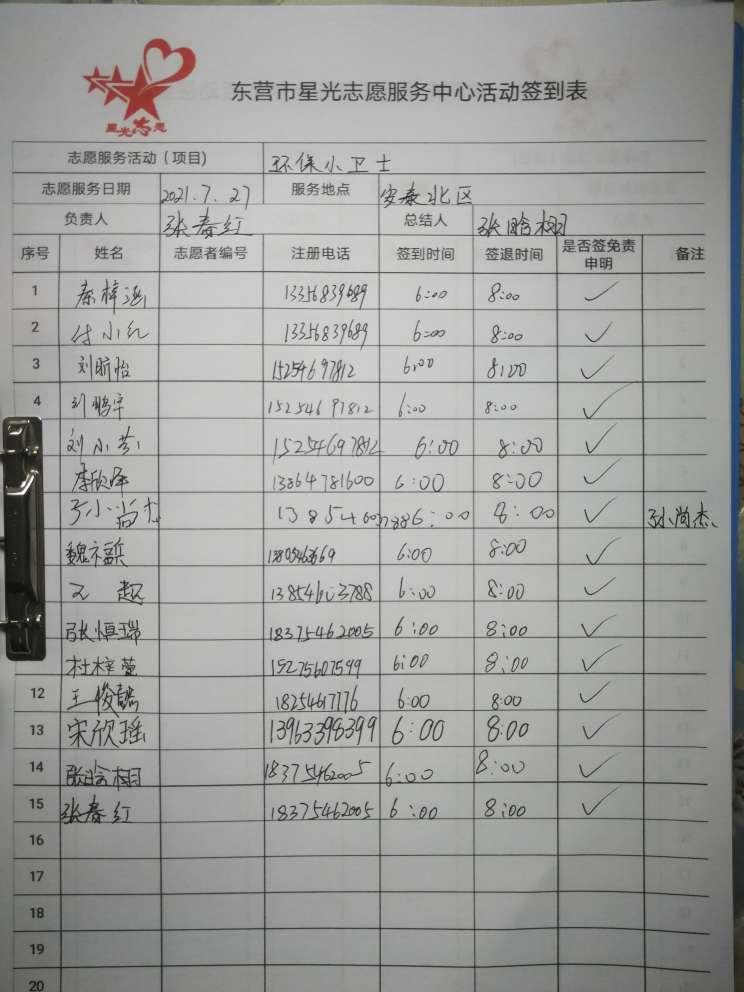 星光志愿
东营市星光志愿服务中心活动签到表
志愿服务活动(项目) 环保小卫士
志愿服务日期 2021.7.27 服务地点 安泰北区
负责人 张春红 总结人 张晗栩
序号 姓名 志愿者编号 注册电话 签到时间 签退时间 是否签免责申明 备注
1 秦梓涵 13356839689 6:00 8:00 ✓
2 付小红 13356839689 6:00 8:00 ✓
3 刘昕怡 15254697812 6:00 8:00 ✓
4 刘鹏宇 15254697812 6:00 8:00 ✓
刘小芳 15254697812 6:00 8:00 ✓
李欣泽 13864781600 6:00 8:00 ✓
6:00 8:00 ✓ 孙尚杰
魏福祺 6:00 8:00 ✓
王超 13854603788 6:00 8:00 ✓
张恒瑞 18375462005 6:00 8:00 ✓
杜梓萱 15275607599 6:00 8:00 ✓
12 王俊懿 18254617776 6:00 8:00 ✓
13 宋欣瑶 13963398399 6:00 8:00 ✓
14 张晗栩 18375462005 6:00 8:00 ✓
15 张春红 18375462005 6:00 8:00 ✓
16
17
18
19
20